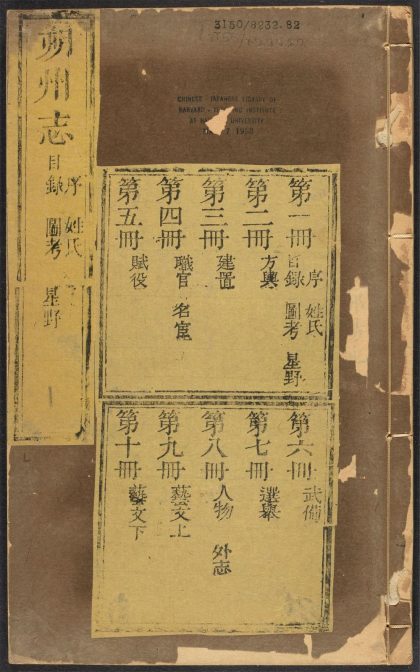 3150/8232.82
CHINESE - JAPANESE LIBRARY OF
HARVARD - YENCHING INSTITUTE
AT HARVARD UNIVERSITY
1958
朔州志
序 姓氏
目錄 圖考 星野
第一冊 序 姓氏
目錄 圖考 星野
第二冊 方輿
第三冊 建置
第四冊 職官 名宦
第五冊 賦役
第六冊 武備
第七冊 選舉
第八冊 人物 外志
第九冊 藝文上
第十冊 藝文下